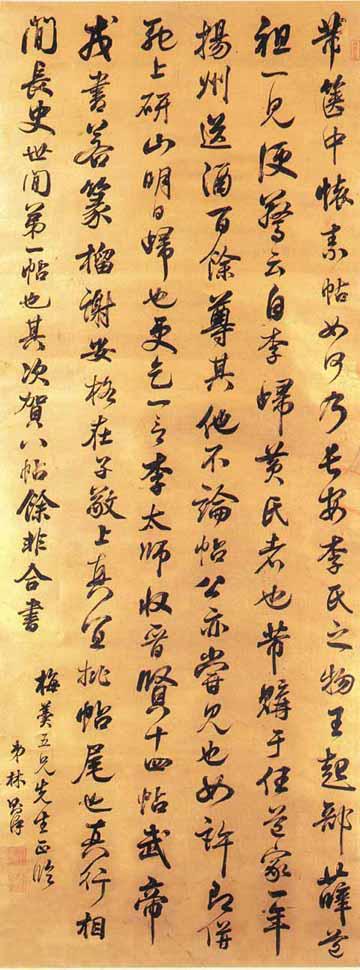 芾篋中懷素帖如何乃長安李氏之物王起部薛道
祖一見便驚云自李歸黃氏者也芾購于任道家一年
揚州送酒百餘尊其他不論帖公亦嘗見也如許即併
馳上研山明日歸也更乞一言李太師收晉賢十四帖武帝
戎書若篆籀謝安格在子敬上真宜批帖尾也真行相
間長史世間第一帖也其次賀八帖餘非合書
梅羹五兄先生正
弟林則徐